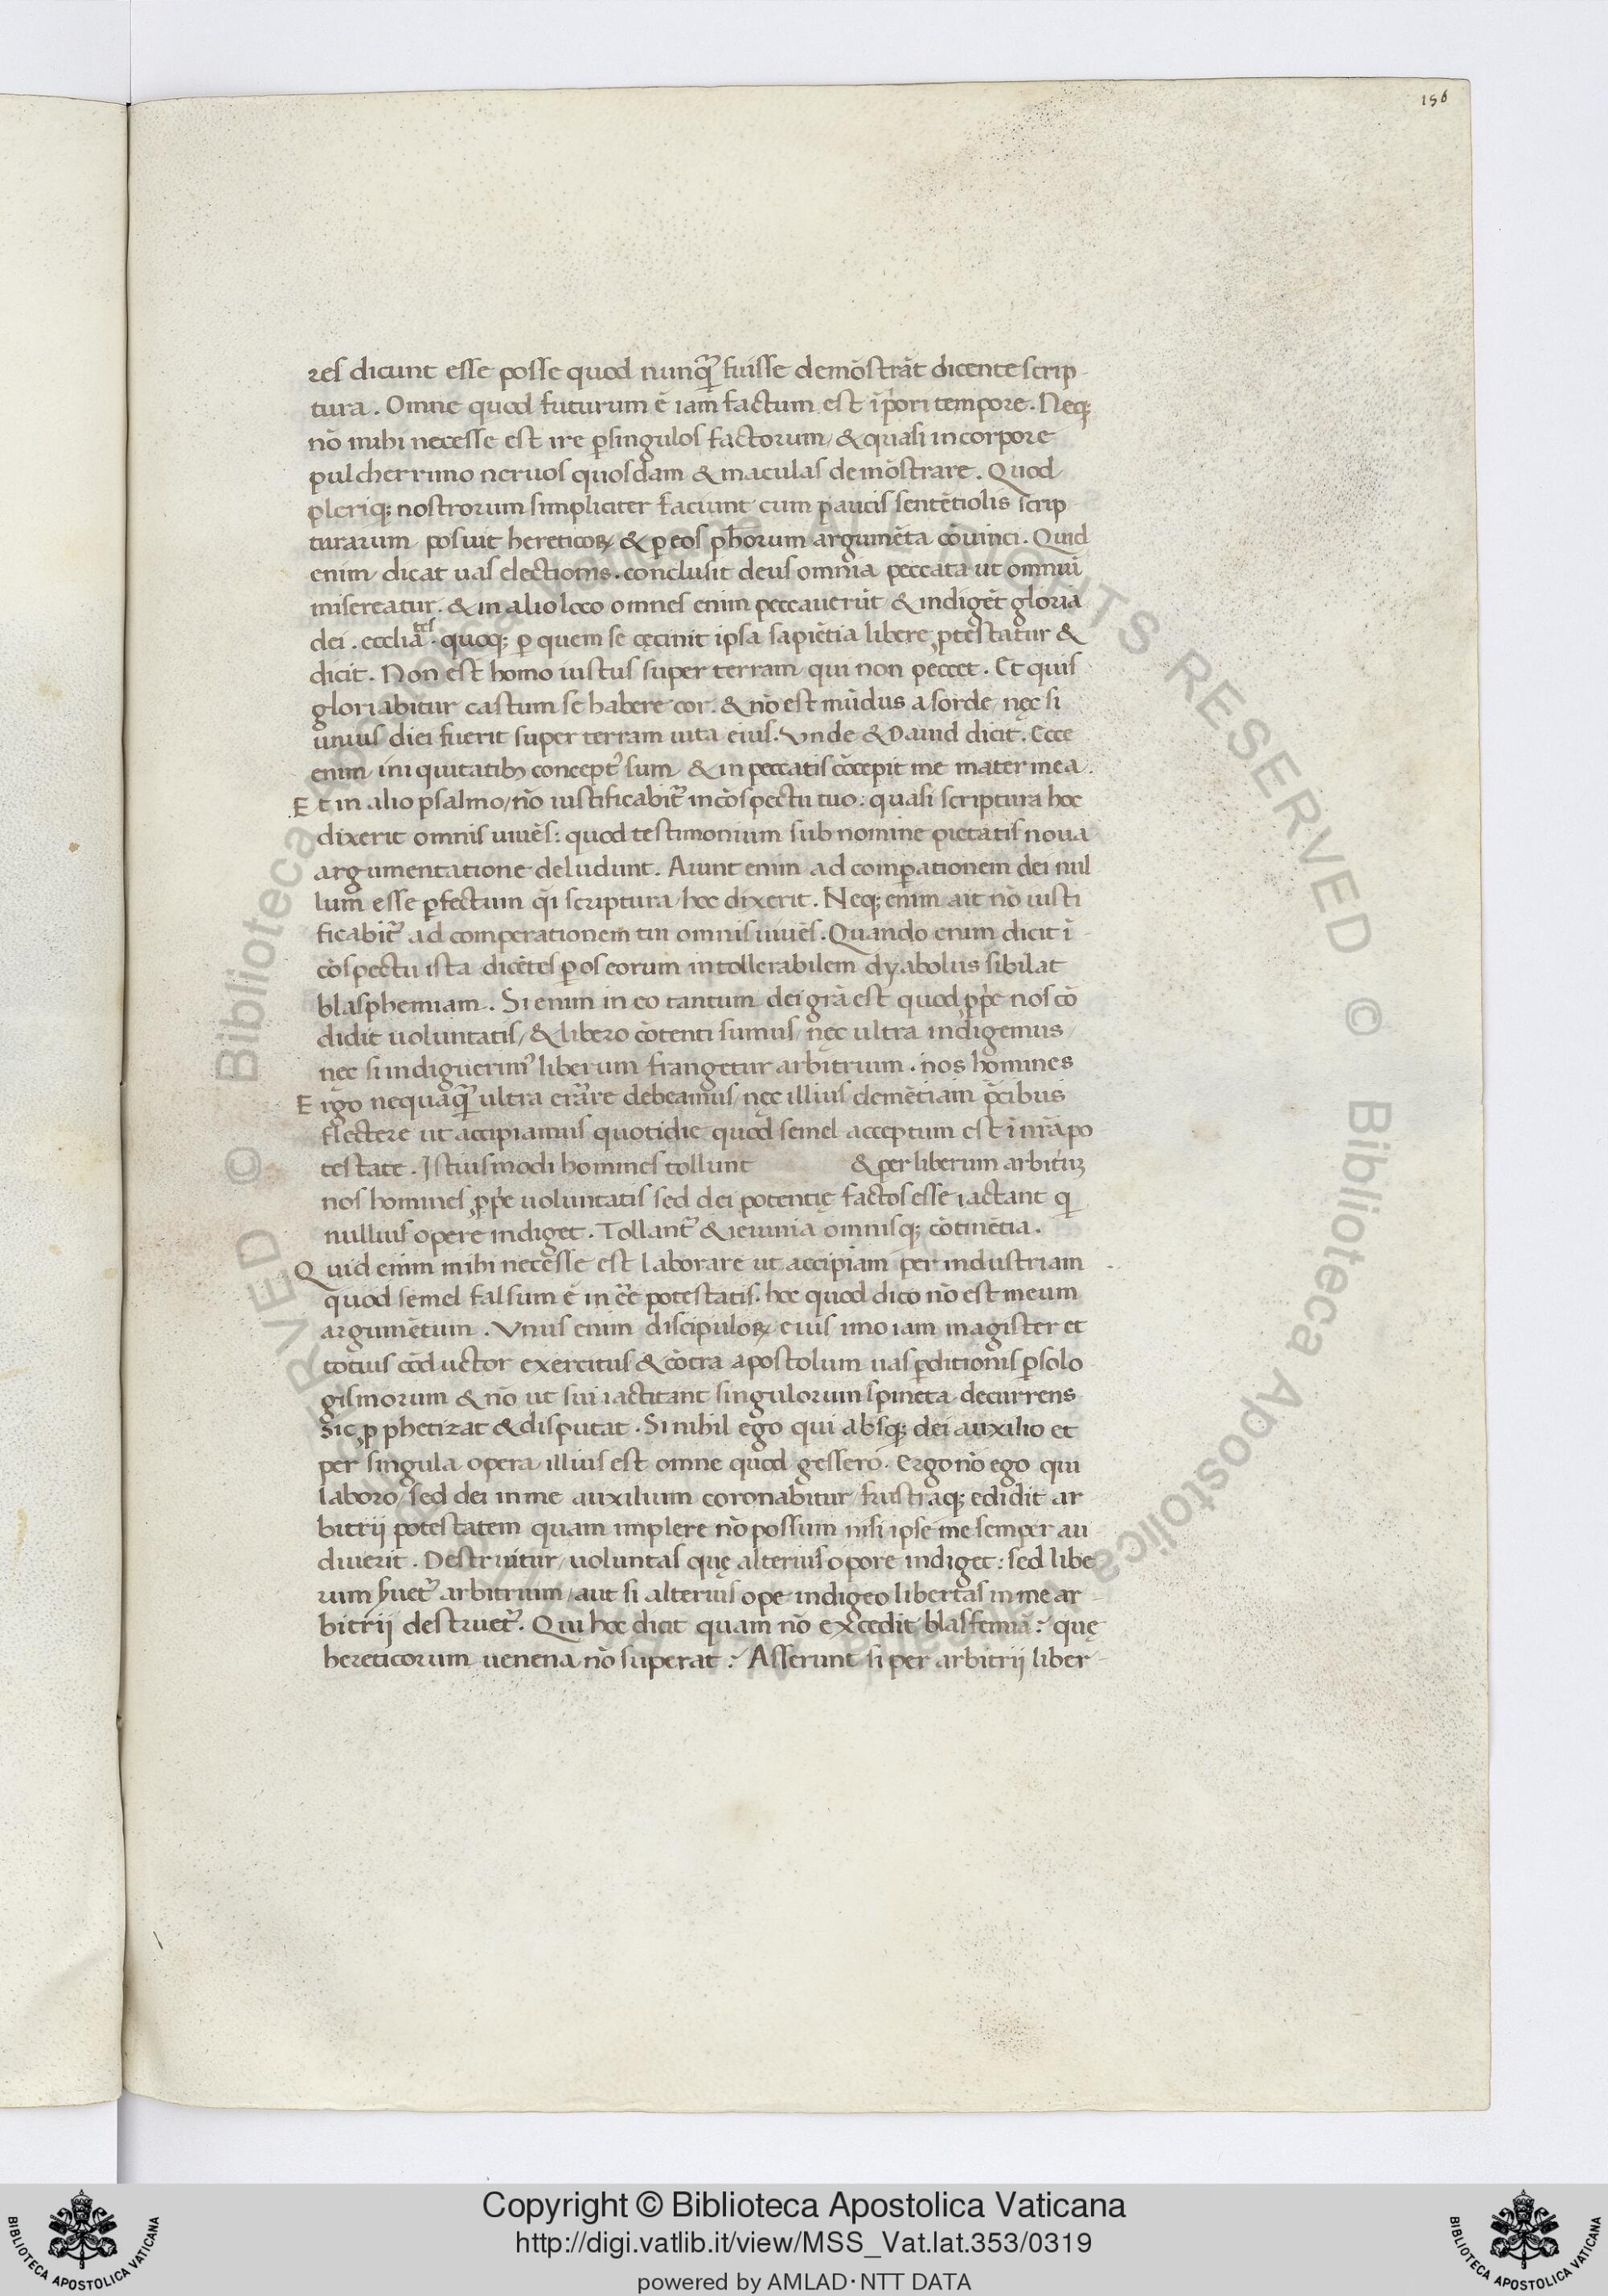 156
res dicunt esse posse quod nunq̃ fuisse demõstrãt dicente scrip
tura. Omne quod futurum ẽ iam factum est ĩ p̃ori tempore. Neq;
nõ mihi necesse est ire ꝑ singulos factorum / & quasi in corpore
pulcherrimo neruos quosdam & maculas demõstrare. Quod
pleriq; nostrorum simpliciter faciunt cum paucis sentẽtiolis scrip
turarum posuit hereticoꝝ & ꝑ eos ph̃orum argumẽta cõuinci. Quid
enim dicat uas electionis. conclusit deus omnia peccata ut omniũ
misereatur. & in alio loco omnes enim peccauerũt & indigẽt gloria
dei. ecclia tes. quoq; ꝑ quem se cęcinit ipsa sapiẽtia libere ꝓtestatur &
dicit. Non est homo iustus super terram qui non peccet. Et quis
gloriabitur castum se habere cor. & nõ est mũdus a sorde / nęc si
unius diei fuerit super terram uita eius. Vnde & Dauid dicit. Ecce
enim iniquitatibꝫ concept᾿ sum & in peccatis cõcepit me mater mea.
Et in alio psalmo / nõ iustificabit᾿ in cõspectu tuo: quasi scriptura hoc
dixerit omnis uiuẽs: quod testimonium sub nomine pietatis noua
argumentatione deludunt. Aiunt enim ad comꝑationem dei nul
lum esse ꝑfectum q̃i scriptura hoc dixerit. Neq; enim ait nõ iusti
ficabit᾿ ad comperationem tui omnis uiuẽs. Quando enim dicit ĩ
cõspectu ista dicẽtes ꝑ os eorum intollerabilem dyabolus sibilat
blasphemiam. Si enim in eo tantum dei grã est quod ꝓp̃e nos cõ
didit uoluntatis / & libero cõtenti sumus / nęc ultra indigemus /
nec si indiguerim᾿ liberum frangetur arbitrium. nos homines
Ergo nequaq̃ ultra erare debeamus / nęc illius clemẽtiam p̃cibus
flectere ut accipiamus quotidie quod semel acceptum est ĩ nr̃a po
testate. Istiusmodi homines tollunt & per liberum arbitriũ
nos homines ꝓp̃e uoluntatis sed dei potentię factos esse iactant q
nullius opere indiget. Tollant᾿ & ieiunia omnisq; cõtinẽtia.
Quid enim mihi necesse est laborare ut accipiam per industriam
quod semel falsum ẽ in eẽ potestatis. hoc quod dico nõ est meum
argumẽtum. Vnus enim discipuloꝝ eius imo iam magister et
totius cõductor exercitus & cõtra apostolum uas ꝑditionis ꝑ solo
gismorum & nõ ut sui iactitant singulorum spineta decurrens
sic ꝓphetizat & disputat. Si nihil ego qui absq; dei auxilio et
per singula opera illius est omne quod gessero. Ergo nõ ego qui
laboro / sed dei in me auxilium coronabitur / frustraq; edidit ar
bitrij potestatem quam implere nõ possum nisi ipse me semper au
diuerit. Destruitur uoluntas quę alterius opore indiget: sed libe
rum ẏuet᾿ arbitrium / aut si alterius ope indigeo libertas in me ar
bitrij destruet᾿. Qui hoc dicit quam nõ excedit blasfemiã? quę
hereticorum uenena nõ superat? Asserunt si per arbitrij liber
© Biblioteca Apostolica Vaticana ALL RIGHTS RESERVED
© Biblioteca Apostolica Vaticana ALL RIGHTS RESERVED
Copyright © Biblioteca Apostolica Vaticana
http://digi.vatlib.it/view/MSS_Vat.lat.353/0319
powered by AMLAD·NTT DATA
BIBLIOTECA APOSTOLICA VATICANA
BIBLIOTECA APOSTOLICA VATICANA